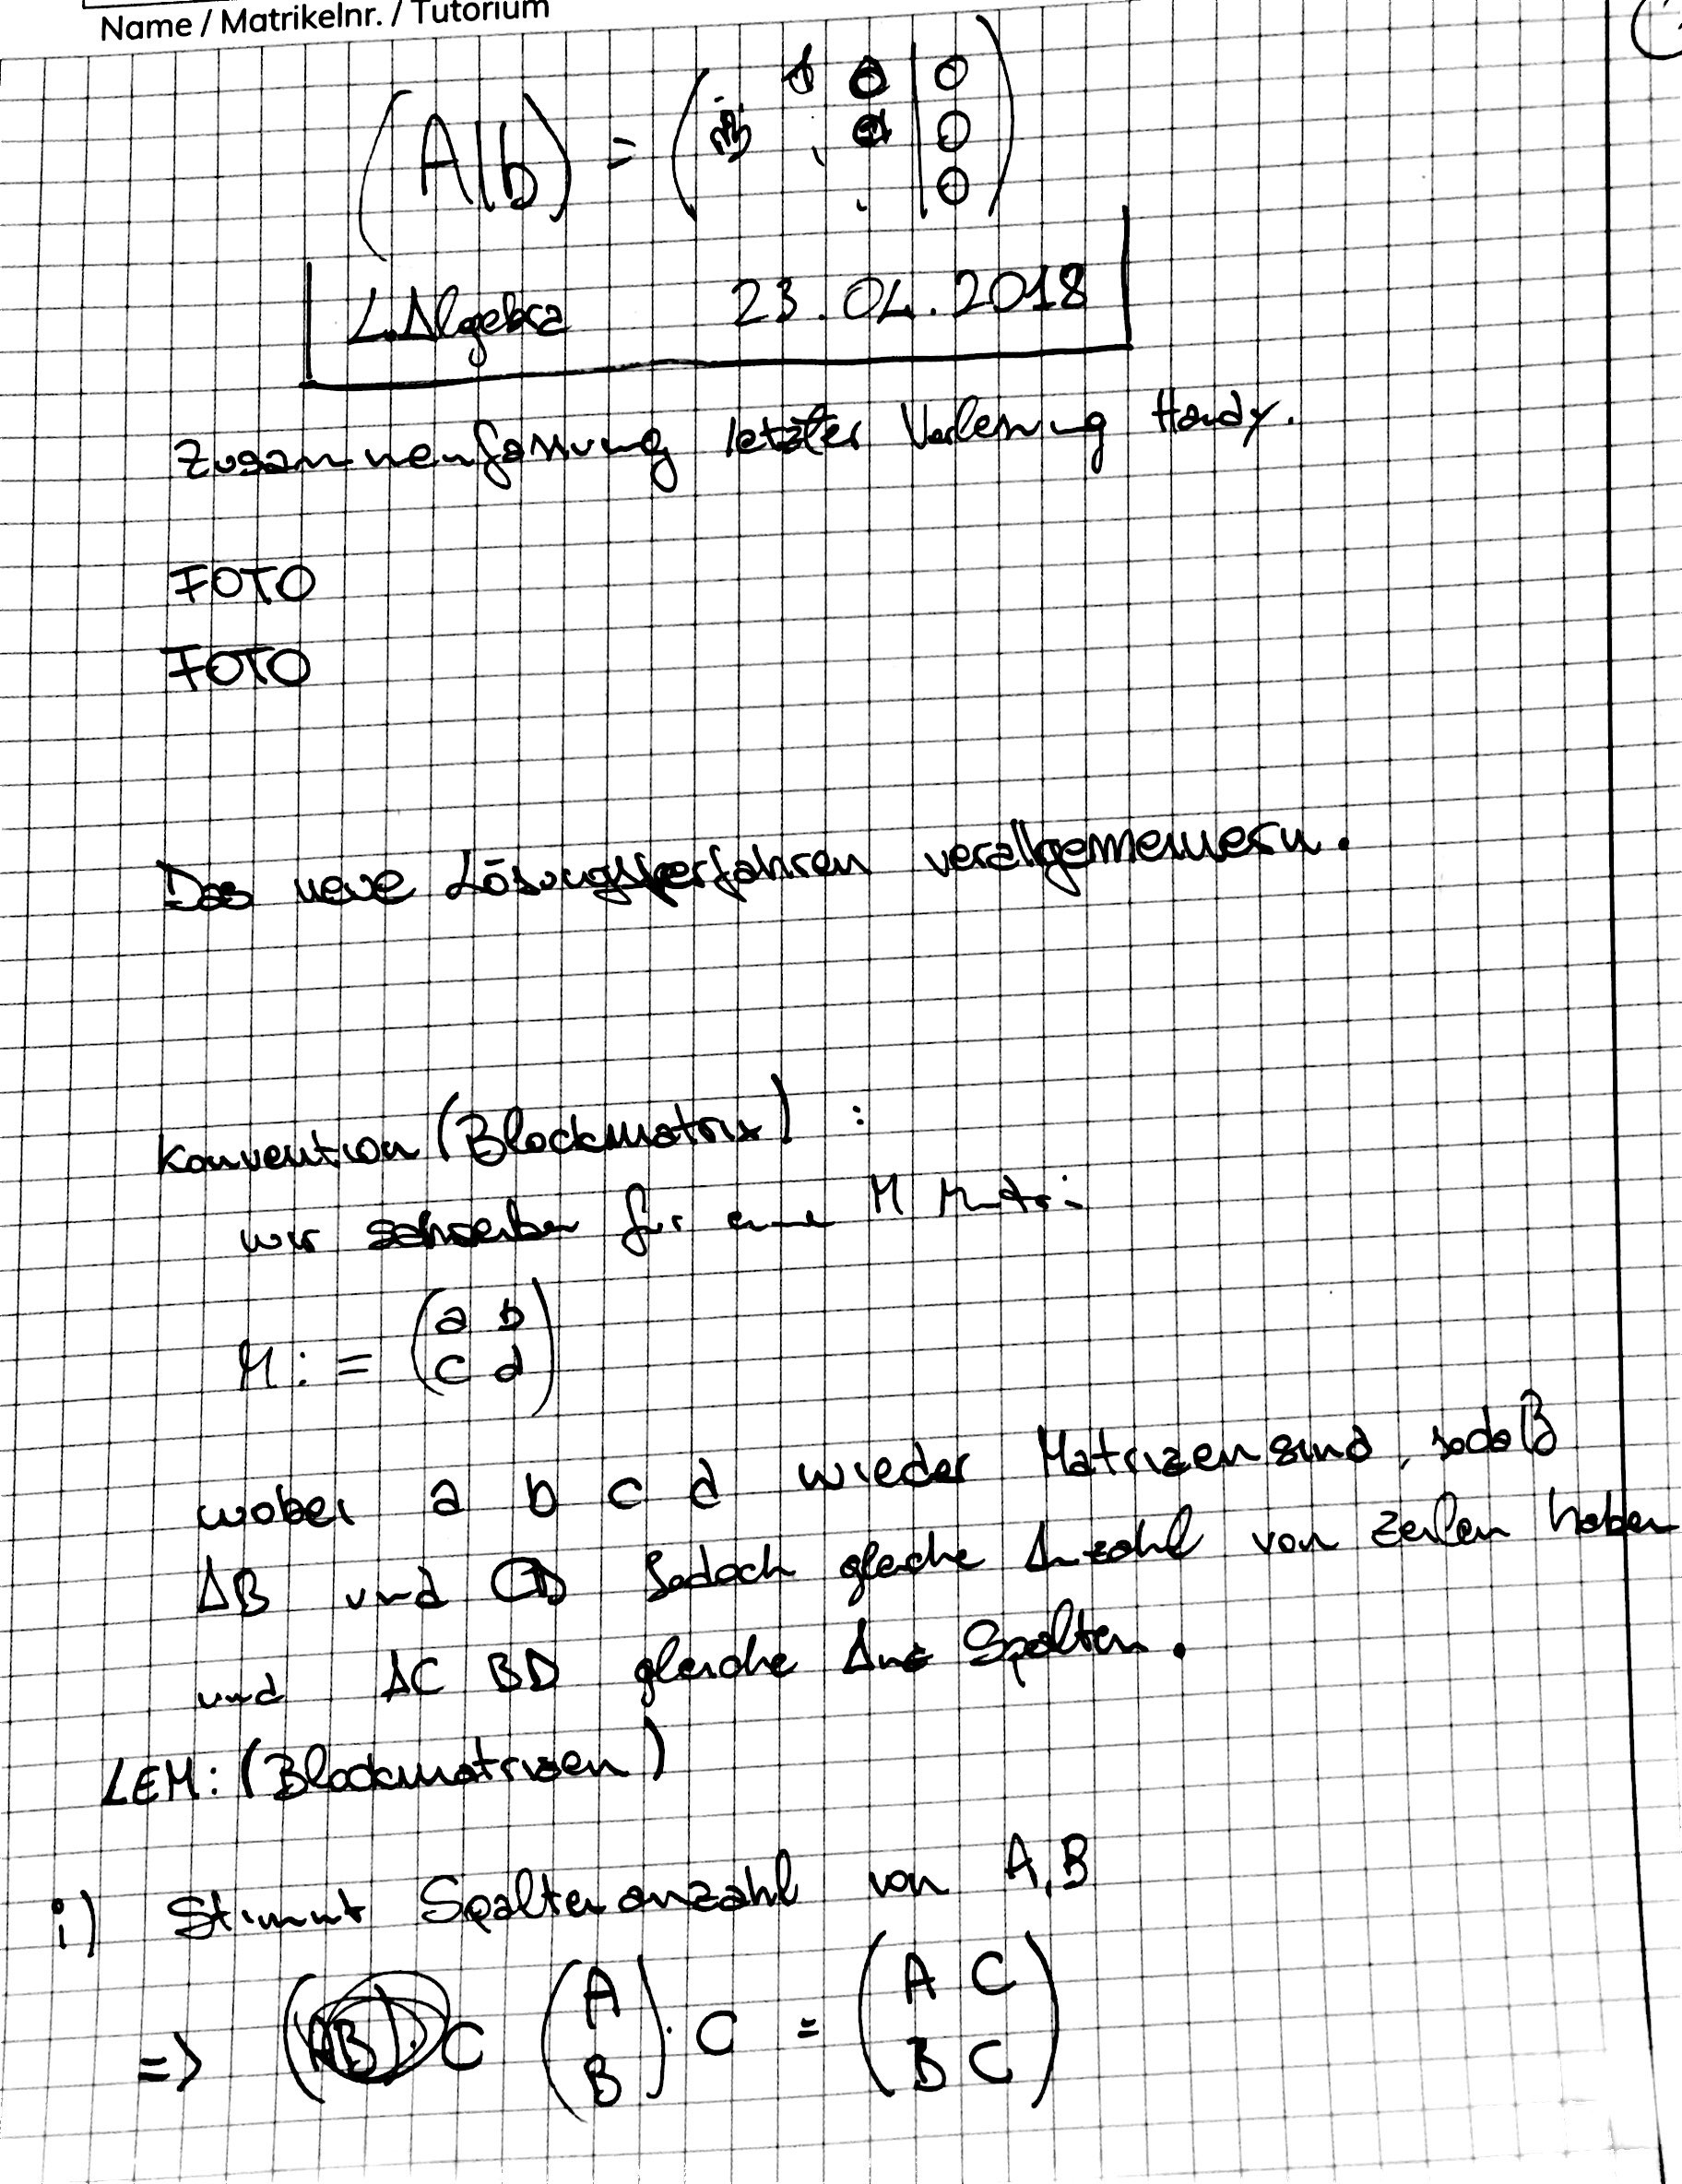 Name / Matrikelnr. / Tutorium
(A|b) = ( 1 0 | 0
0
0 )
L.Algebra 23.04.2018
Zusammenfassung letzter Vorlesung Handy.
FOTO
FOTO
Das neue Lösungsverfahren verallgemeinern.
Konvention (Blockmatrix) :
wir schreiben für eine M Matri
M := ( a b
c d )
wobei a b c d wieder Matrizen sind, sodaß
AB und CD jedoch gleiche Anzahl von Zeilen haben
und AC BD gleiche Anz Spalten.
LEM: (Blockmatrizen)
i) Stimmt Spaltenanzahl von A,B
=> C (A
B) · C = (A C
B C)